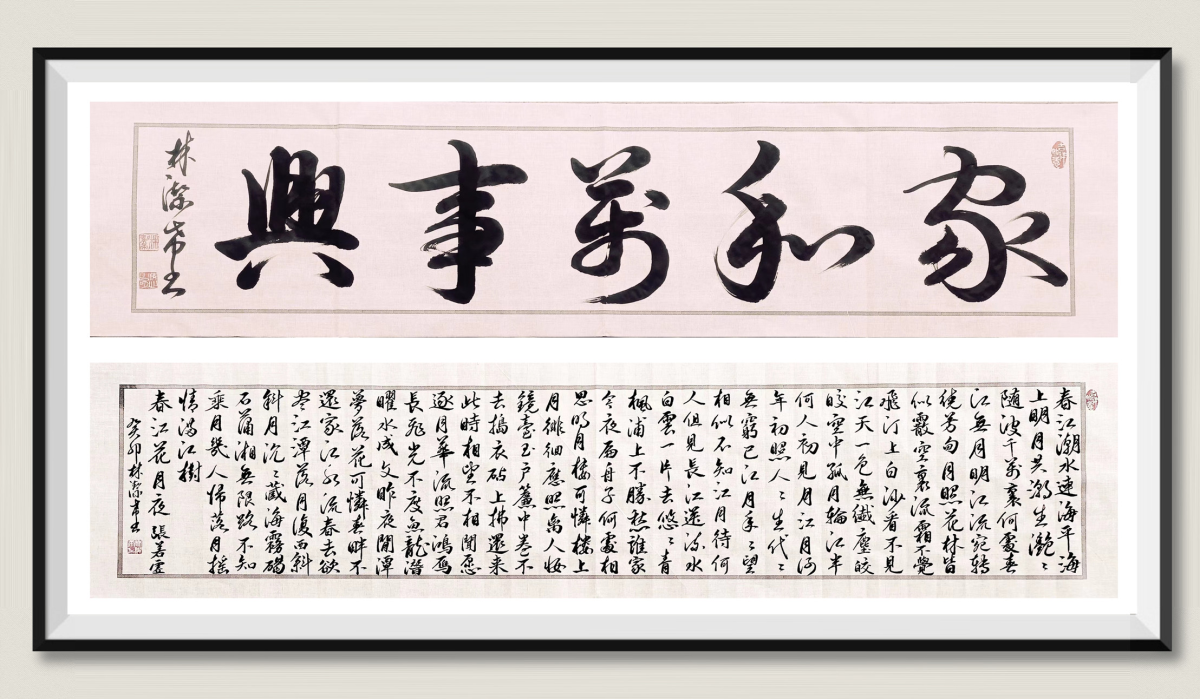 家和萬事興
林潔
春江潮水連海平海
上明月共潮生灧〻
隨波千萬裏何處春
江無月明江流宛轉
繞芳甸月照花林皆
似霰空裏流霜不覺
飛汀上白沙看不見
江天一色無纖塵皎
皎空中孤月輪江半
何人初見月江月何
年初照人〻生代〻
無窮已江月年〻望
相似不知江月待何
人但見長江送流水
白雲一片去悠〻青
楓浦上不勝愁誰家
今夜扁舟子何處相
思明月樓可憐樓上
月徘徊應照离人妝
鏡臺玉户簾中卷不
去搗衣砧上拂還来
此時相望不相聞愿
逐月華流照君鴻雁
長飛光不度魚龍潛
曜水成文昨夜閒潭
夢落花可憐春畔不
還家江水流春去欲
尽江潭落月復西斜
斜月沉〻藏海霧碣
石瀟湘無限路不知
乘月幾人歸落月搖
情满江樹
春江花月夜 張若虛
癸卯林潔書